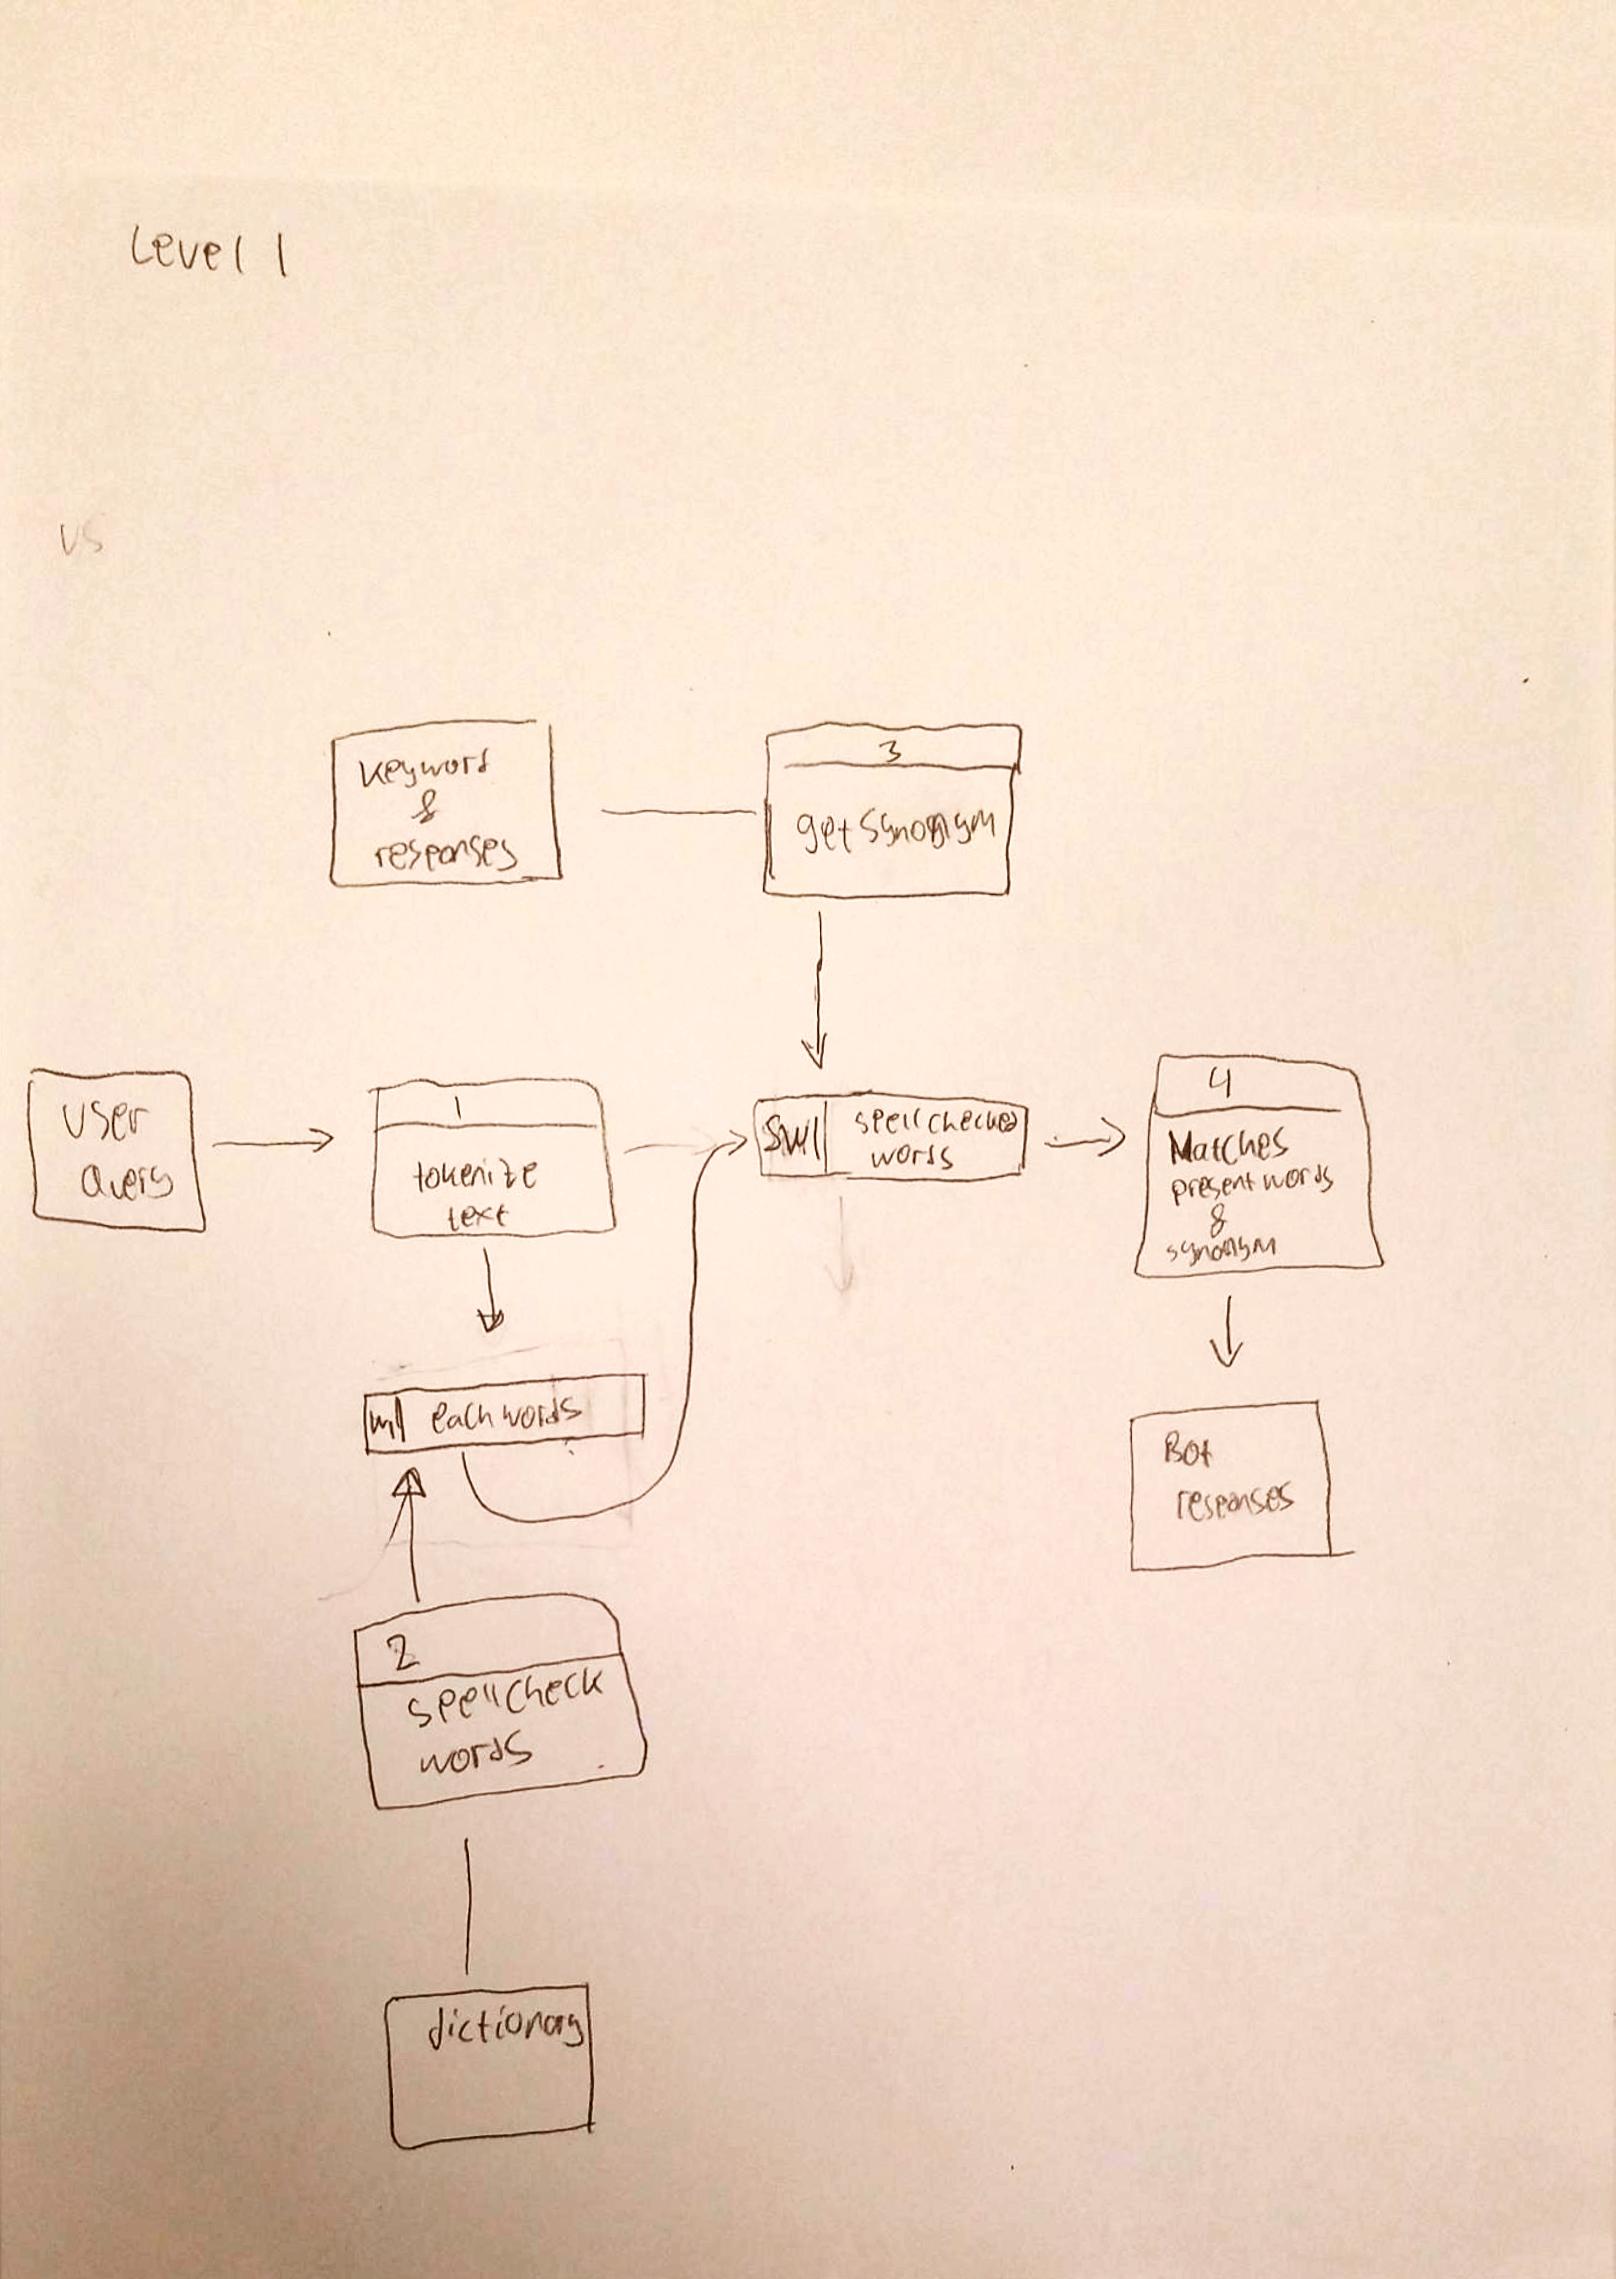 Level 1
US
Keyword
&
responses
3
getSynonym
User
Query
1
tokenize
text
SW1
spellchecked
words
4
Matches
present words
&
synonym
W1
each words
Bot
responses
2
spellcheck
words
dictionary